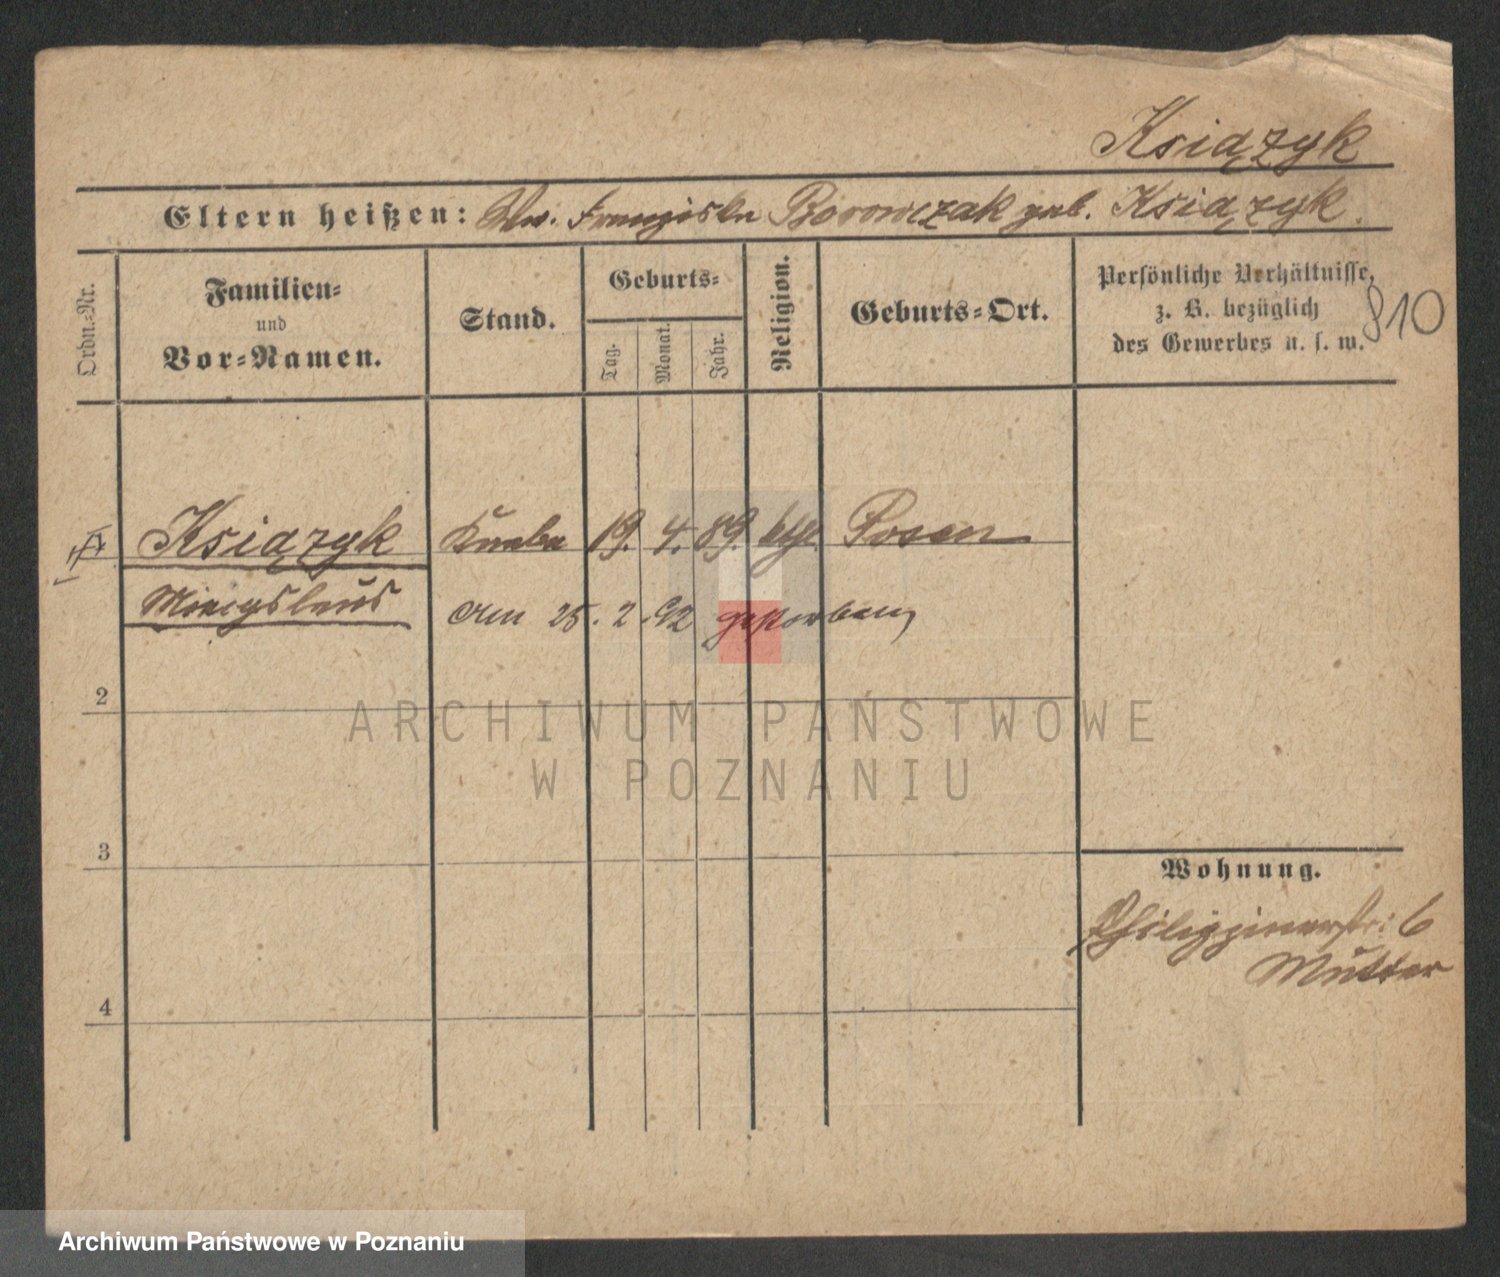 Książyk
Eltern heißen: Ww. Franziska Borowczak geb. Książyk.
Ordn.-Nr.
Familien-
und
Vor-Namen.
Stand.
Geburts-
Tag.
Monat.
Jahr.
Religion.
Geburts-Ort.
Persönliche Verhältnisse,
z. B. bezüglich
des Gewerbes u. s. w.
810
Książyk Knabe 19. 4. 89. kth. Posen
Miecyslaus am 25. 2. 92 gestorben,
2
ARCHIWUM PAŃSTWOWE
W POZNANIU
3
Wohnung.
Philippinerstr: 6
Mutter
4
Archiwum Państwowe w Poznaniu